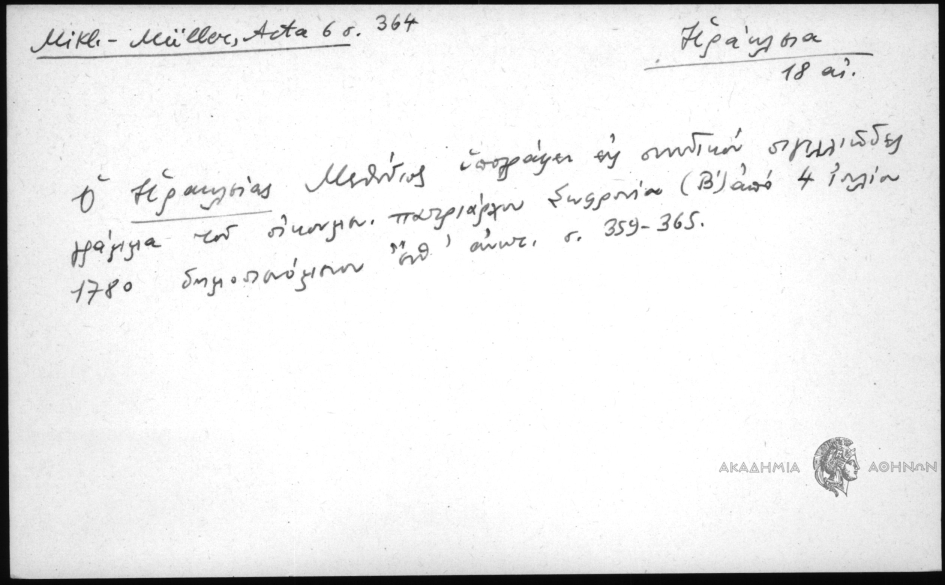 Mikl.-Müller, Acta 6 σ. 364
Ἡράκλεια
18 αἰ.
Ὁ Ἡρακλείας Μεθόδιος ὑπογράφει εἰς συνοδικόν σιγιλλιῶδες
γράμμα τοῦ οἰκουμεν. πατριάρχου Σωφρονίου (Β΄) ἀπό 4 Ἰουλίου
1780 δημοσιευόμενον ἔνθ' ἀνωτ. σ. 359-365.
ΑΚΑΔΗΜΙΑ ΑΘΗΝΩΝ